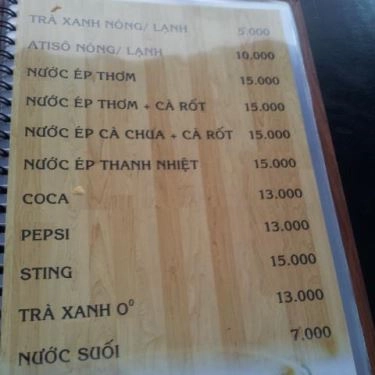 TRÀ XANH NÓNG/ LẠNH 5.000
ATISÔ NÓNG/ LẠNH 10.000
NƯỚC ÉP THƠM 15.000
NƯỚC ÉP THƠM + CÀ RỐT 15.000
NƯỚC ÉP CÀ CHUA + CÀ RỐT 15.000
NƯỚC ÉP THANH NHIỆT 15.000
COCA 13.000
PEPSI 13.000
STING 15.000
TRÀ XANH O⁰ 13.000
NƯỚC SUỐI 7.000